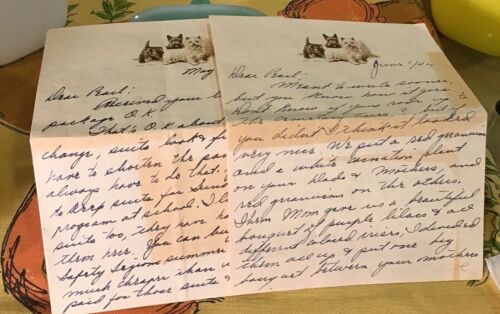 May
Dear Pearl:
Received your
package O.K.
That's O.K about
change, suits look & f
have to shorten the pa
always have to do that.
to keep suits you send
program at school. I
suits too, they have
them here. You can bu
Safety Legion summer
much cheaper than
paid for those suits &
June 1/44
Dear Pearl:
Meant to write sooner,
but you know how it goes
don't know if your
the but if
you didn't I think it looked
very nice. We put a red geranium
and a white carnation plant
on your Dads & Mothers, and
red geranium on the others.
Then Mom gave us a beautiful
bouquet of purple lilacs & all
different colored irises, I divided
them all up & put one big
bouquet between your mothers